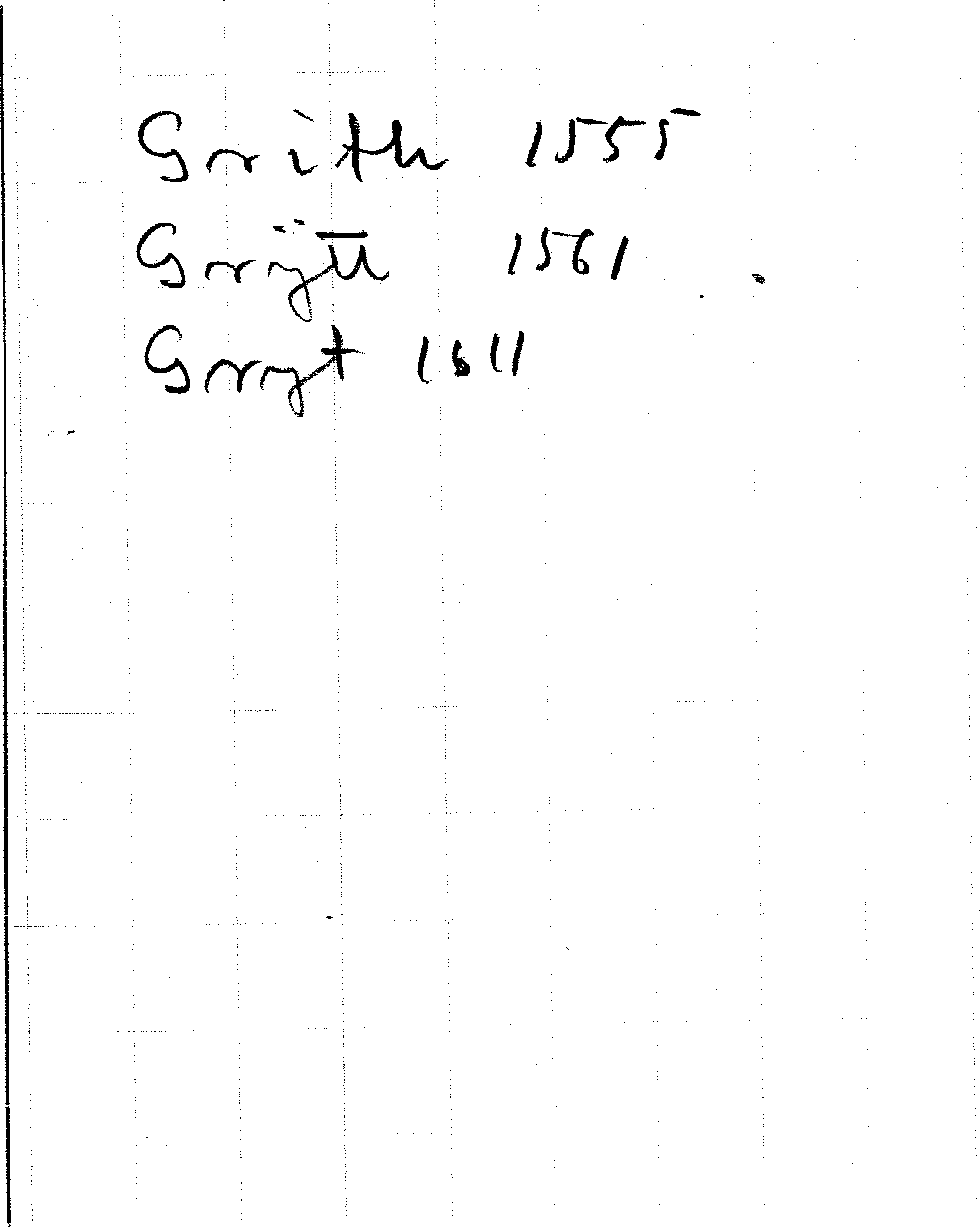 Grith 1555
Grÿtt 1561
Gryt 1611